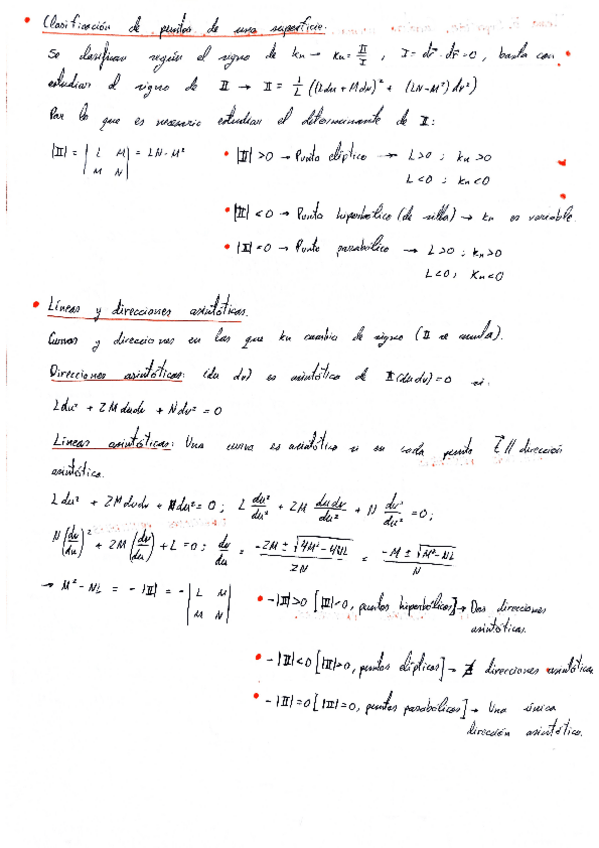 • Clasificación de puntos de una superficie.
Se clasifican según el signo de kn → kn = II/I , I = dr̄ · dr̄ = 0 , basta con
estudiar el signo de II → II = 1/L ((Ldu + Mdv)² + (LN-M²) dv²)
Por lo que es necesario estudiar el determinante de II:
|II| = | L M ; M N | = LN - M²
• |II| > 0 → Punto elíptico → L>0 ; kn >0
L<0 ; kn<0
• |II| < 0 → Punto hiperbólico (de silla) → kn es variable.
• |II| = 0 → Punto parabólico → L>0 ; kn>0
L<0 ; kn<0
• Líneas y direcciones asintóticas.
Curvas y direcciones en las que kn cambia de signo (II se anula).
Direcciones asintóticas: (du dv) es asintótica de II(du dv) = 0 si:
Ldu² + 2M dudv + Ndv² = 0
Líneas asintóticas: Una curva es asintótica si en cada punto t̄ // dirección
asintótica.
Ldu² + 2M dudv + Ndv² = 0 ; L du²/du² + 2M dudv/du² + N dv²/du² = 0 ;
N(dv/du)² + 2M(dv/du) + L = 0 ; dv/du = (-2M ± √(4M² - 4NL))/2N = (-M ± √(M² - NL))/N
→ M² - NL = - |II| = - | L M ; M N |
• -|II|>0 [|II|<0, puntos hiperbólicos] → Dos direcciones
asintóticas.
• -|II|<0 [|II|>0, puntos elípticos] → ∄ direcciones asintóticas
• -|II|=0 [|II|=0, puntos parabólicos] → Una única
dirección asintótica.